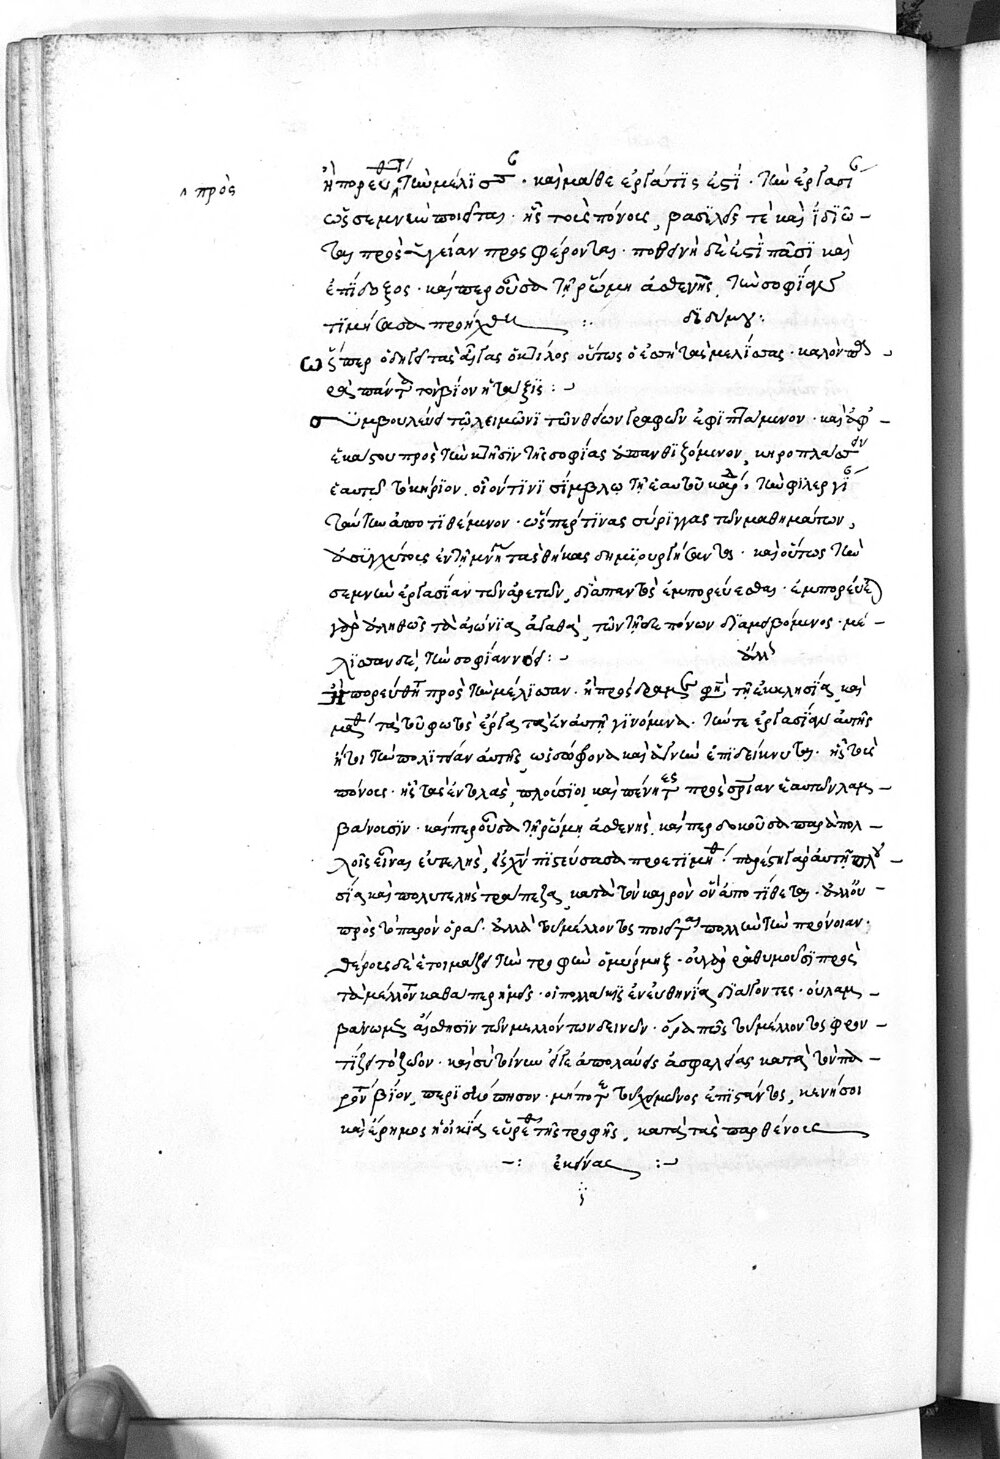 ∧ πρὸς
ἢ πορεύθητι ∧ τὴν μέλισσαν · καὶ μάθε ἐργάτις ἐστὶ · τὴν ἐργασίαν
ὡς σεμνὴν ποιεῖται · ἧς τοὺς πόνους, βασιλεῖς τὲ καὶ ἰδιῶ –
ται πρὸς ὑγείαν προσφέρονται · ποθεινὴ δὲ ἐστὶ πᾶσι καὶ
ἐπίδοξος · καίπερ οὖσα τῇ ῥώμῃ ἀσθενὴς, τὴν σοφίαν
τιμήσασα προήχθη :· διδύμου :
ὥσπερ
πάντα τὸν βίον ἡ τάξις :
συμβουλεύει τῷ λειμῶνι τῶν θείων γραφῶν ἐφιπτάμενον · καὶ ἀφ' –
ἑκάστου πρὸς τὴν κτῆσιν τῆς σοφίας ἀπανθιζόμενον, κηροπλαστεῖν
ἑαυτῷ τὸ κηρίον, οἱονεὶ τινὶ σίμβλῳ τῇ ἑαυτοῦ καρδίᾳ, τὴν φιλεργίαν
ταύτην ἀποτιθέμενον · ὥσπερ τινας σύριγγας τῶν μαθημάτων,
ἀσυγχύτους ἐν τῇ μνήμῃ τὰς θήκας δημιουργήσαντας · καὶ οὕτως τὴν
σεμνὴν ἐργασίαν τῶν ἀρετῶν, διαπαντὸς ἐμπορεύεσθαι · ἐμπορεύεται
γὰρ ἀληθῶς τὰ αἰώνια ἀγαθὰ, τῶν τῇδε πόνων διαμειβόμενος · μέ –
λισσαν δὲ, τὴν σοφίαν νόει : ἄλλος
ἢ πορεύθητι πρὸς τὴν μέλισσαν · ἢ πρόσδραμε φησὶ τῇ ἐκκλησίᾳ, καὶ
μάθε τὰ τοῦ φωτὸς ἔργα τὰ ἐν αὐτῇ γινόμενα · τήν τε ἐργασίαν αὐτῆς
ἤτοι τὴν πολιτείαν αὐτῆς, ὡς σώφρονα καὶ ἁγνὴν ἐπιδείκνυται · ἧς τοὺς
πόνους · ἧς τὰς ἐντολὰς, πλούσιοι καὶ πένητες πρὸς σωτηρίαν ἑαυτῶν λαμ –
βάνουσιν · καίπερ οὖσα τῇ ῥώμῃ ἀσθενὴς, καίπερ δοκοῦσα παρὰ πολ –
λοῖς εἶναι εὐτελὴς, εἰς χριστὸν πιστεύσασα προετιμήθη · πάρεστι γὰρ αὐτῇ πλου
σία καὶ πολυτελὴς τράπεζα, κατὰ τὸν καιρὸν οὖν ἀποτίθεται · ἀλλ' οὐ –
πρὸς τὸ παρὸν ὁρᾷ · ἀλλὰ τοῦ μέλλοντος ποιεῖται πολλὴν τὴν πρόνοιαν ·
θέρους δὲ ἑτοιμάζει τὴν τροφὴν ὁ μύρμηξ · οὐ γὰρ ῥαθυμοῦσι πρὸς
τὸ μέλλον καθάπερ ἡμεῖς · οἱ πολλάκις ἐν εὐθηνίᾳ διάγοντες · οὐ λαμ –
βάνωμεν αἴσθησιν τῶν μελλόντων δεινῶν · ὅρα πῶς τοῦ μέλλοντος φρον –
τίζει τὸ ζῶον · καὶ σὺ τοίνυν ἕως ἀπολαύεις ἀσφαλείας κατὰ τὸν πα –
ρόντα βίον, περισκόπησον · μήποτε τοῦ χειμῶνος ἐπιστάντος, κενή σοι
καὶ ἔρημος ἡ οἰκία εὑρεθῇ τῆς τροφῆς, κατὰ τὰς παρθένους
–: ἐκείνας :–